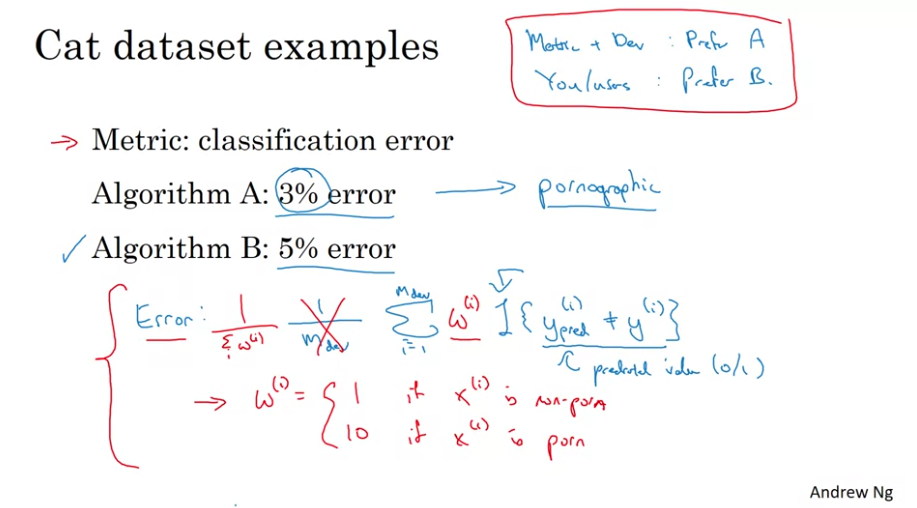 Cat dataset examples
Metric + Dev : Prefer A
You/users : Prefer B.
→ Metric: classification error
Algorithm A: 3% error → pornographic
✓ Algorithm B: 5% error
Error: 1/Σᵢ w⁽ⁱ⁾ 1/m_dev Σᵢ₌₁^m_dev w⁽ⁱ⁾ 1{y_pred⁽ⁱ⁾ ≠ y⁽ⁱ⁾}
predicted value (0/1)
→ w⁽ⁱ⁾ = { 1 if x⁽ⁱ⁾ is non-porn
10 if x⁽ⁱ⁾ is porn
Andrew Ng